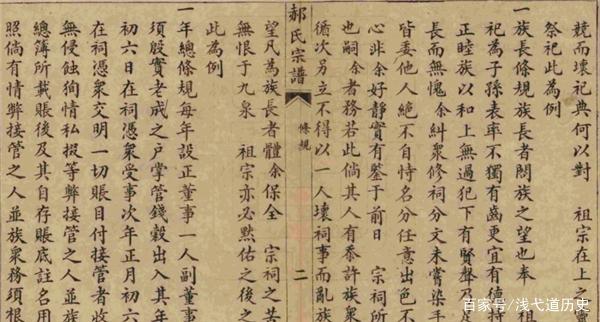 競而壞祀典何以對　祖宗在上之靈
祭祀此為例
一族長條規族長者閤族之望也奉　祖
祀為子孫表率不獨有齒更宜有德持
正睦族以和上無過犯下有賢聲乃足
長而無愧余糾衆修祠分文未嘗染手
皆委他人絕不自恃名分任意出色不
心非余好靜實有鑒于前日　宗祠所
也嗣余者務若此倘其人有忝許族衆
循次另立不得以一人壞祠事而亂族
郝氏宗譜
條規
二
望凡為族長者體余保全　宗祠之苦
無恨于九泉　祖宗亦必默佑之後之
此為例
一年總條規每年設正董事一人副董事
須殷實老成之戶掌管錢穀出入其年
初六日在祠憑衆受事次年正月初六
在祠憑衆交明一切賬目付接管者收
無侵蝕狥情私掇等弊接管之人並族
總簿所載賬後及其自存賬底註名用
照倘有情弊接管之人並族衆務須根
百家号/浅弋道历史